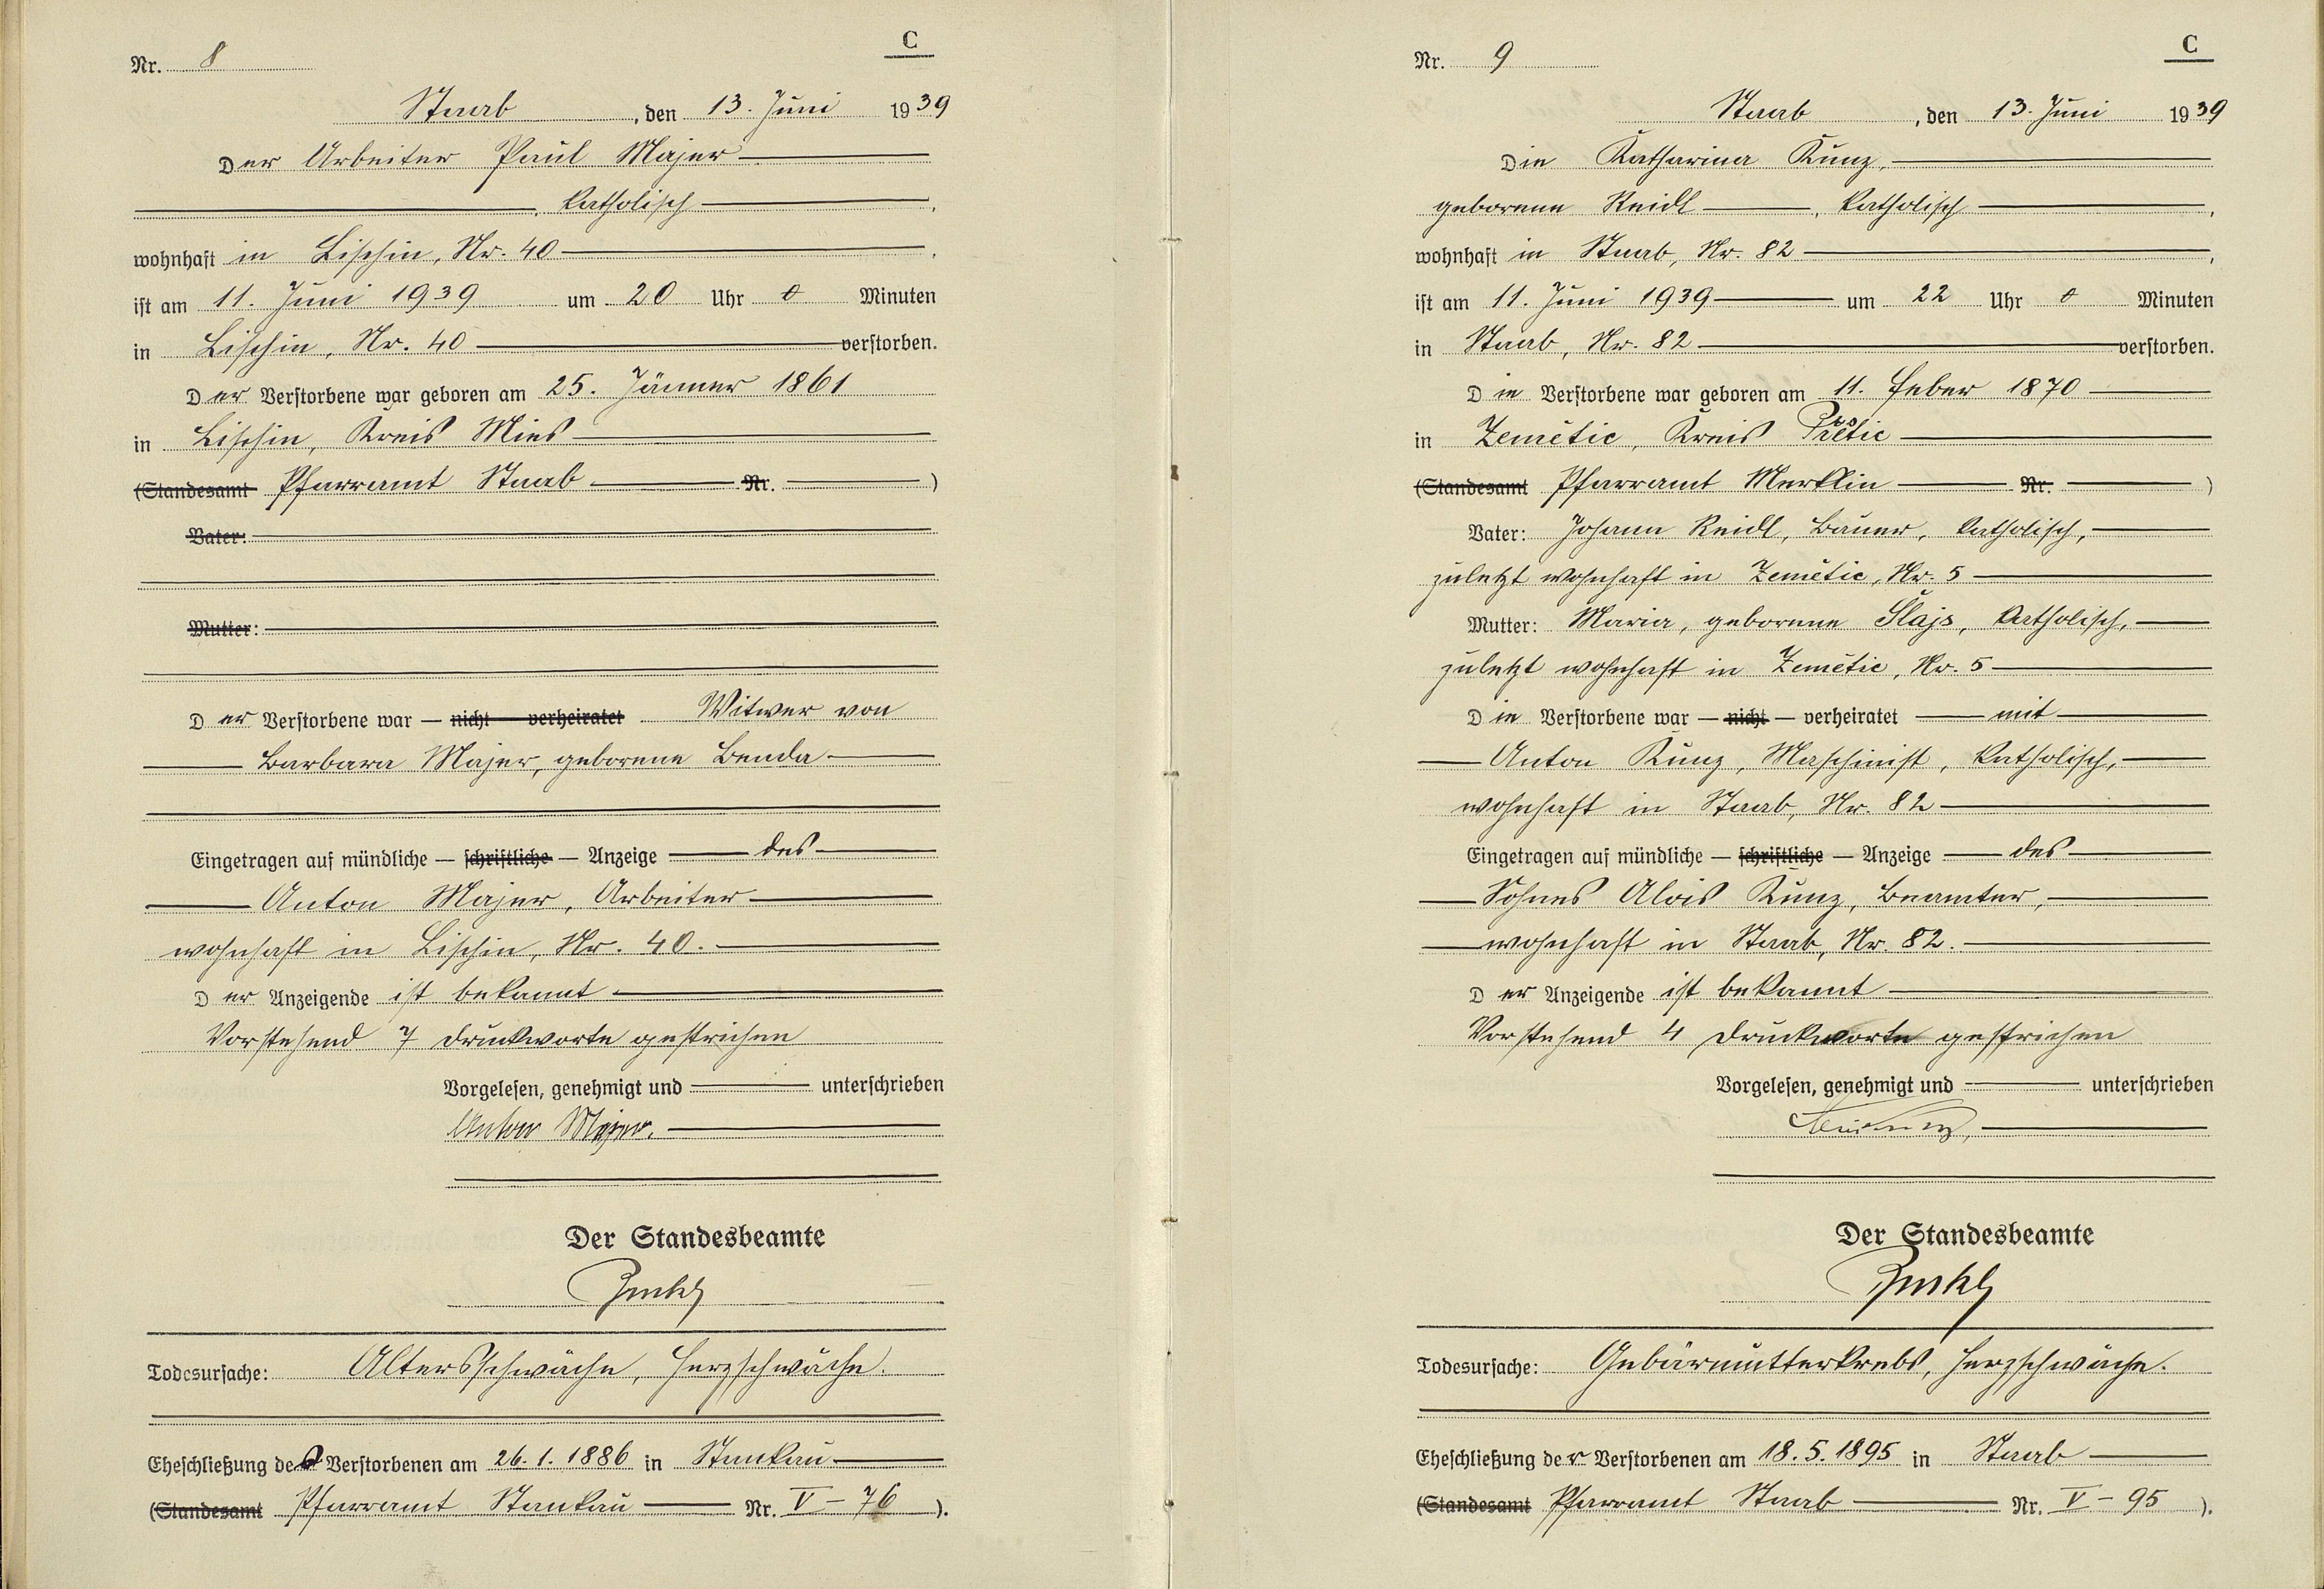 C
Nr. 8
Staab, den 13. Juni 1939
Der Arbeiter Paul Majer
katholisch,
wohnhaft in Lischin, Nr. 40,
ist am 11. Juni 1939 um 20 Uhr 0 Minuten
in Lischin, Nr. 40 verstorben.
Der Verstorbene war geboren am 25. Jänner 1861
in Lischin, Kreis Mies
(Standesamt Pfarramt Staab Nr. )
Vater:
Mutter:
Der Verstorbene war — nicht — verheiratet Witwer von
Barbara Majer, geborene Benda
Eingetragen auf mündliche — schriftliche — Anzeige des
Anton Majer, Arbeiter
wohnhaft in Lischin, Nr. 40.
Der Anzeigende ist bekannt
Vorstehend 7 Druckworte gestrichen
Vorgelesen, genehmigt und unterschrieben
Anton Majer.
Der Standesbeamte
Todesursache: Altersschwäche, Herzschwäche.
Eheschließung des Verstorbenen am 26.1.1886 in Stankau
(Standesamt Pfarramt Stankau Nr. V - 76).
C
Nr. 9
Staab, den 13. Juni 1939
Die Katharina Kunz,
geborene Reidl, katholisch,
wohnhaft in Staab, Nr. 82,
ist am 11. Juni 1939 um 22 Uhr 0 Minuten
in Staab, Nr. 82 verstorben.
Die Verstorbene war geboren am 11. Feber 1870
in Zemětic, Kreis
(Standesamt Pfarramt Merklin Nr. )
Vater: Johann Reidl, Bauer, katholisch,
zuletzt wohnhaft in Zemětic, Nr. 5
Mutter: Maria, geborene Šlajs, katholisch,
zuletzt wohnhaft in Zemětic, Nr. 5
Die Verstorbene war — nicht — verheiratet mit
Anton Kunz, Maschinist, katholisch,
wohnhaft in Staab, Nr. 82
Eingetragen auf mündliche — schriftliche — Anzeige des
Sohnes Alois Kunz, Beamter,
wohnhaft in Staab, Nr. 82.
Der Anzeigende ist bekannt
Vorstehend 4 Druckworte gestrichen
Vorgelesen, genehmigt und unterschrieben
Der Standesbeamte
Todesursache: Gebärmutterkrebs, Herzschwäche.
Eheschließung der Verstorbenen am 18.5.1895 in Staab
(Standesamt Pfarramt Staab Nr. V - 95).